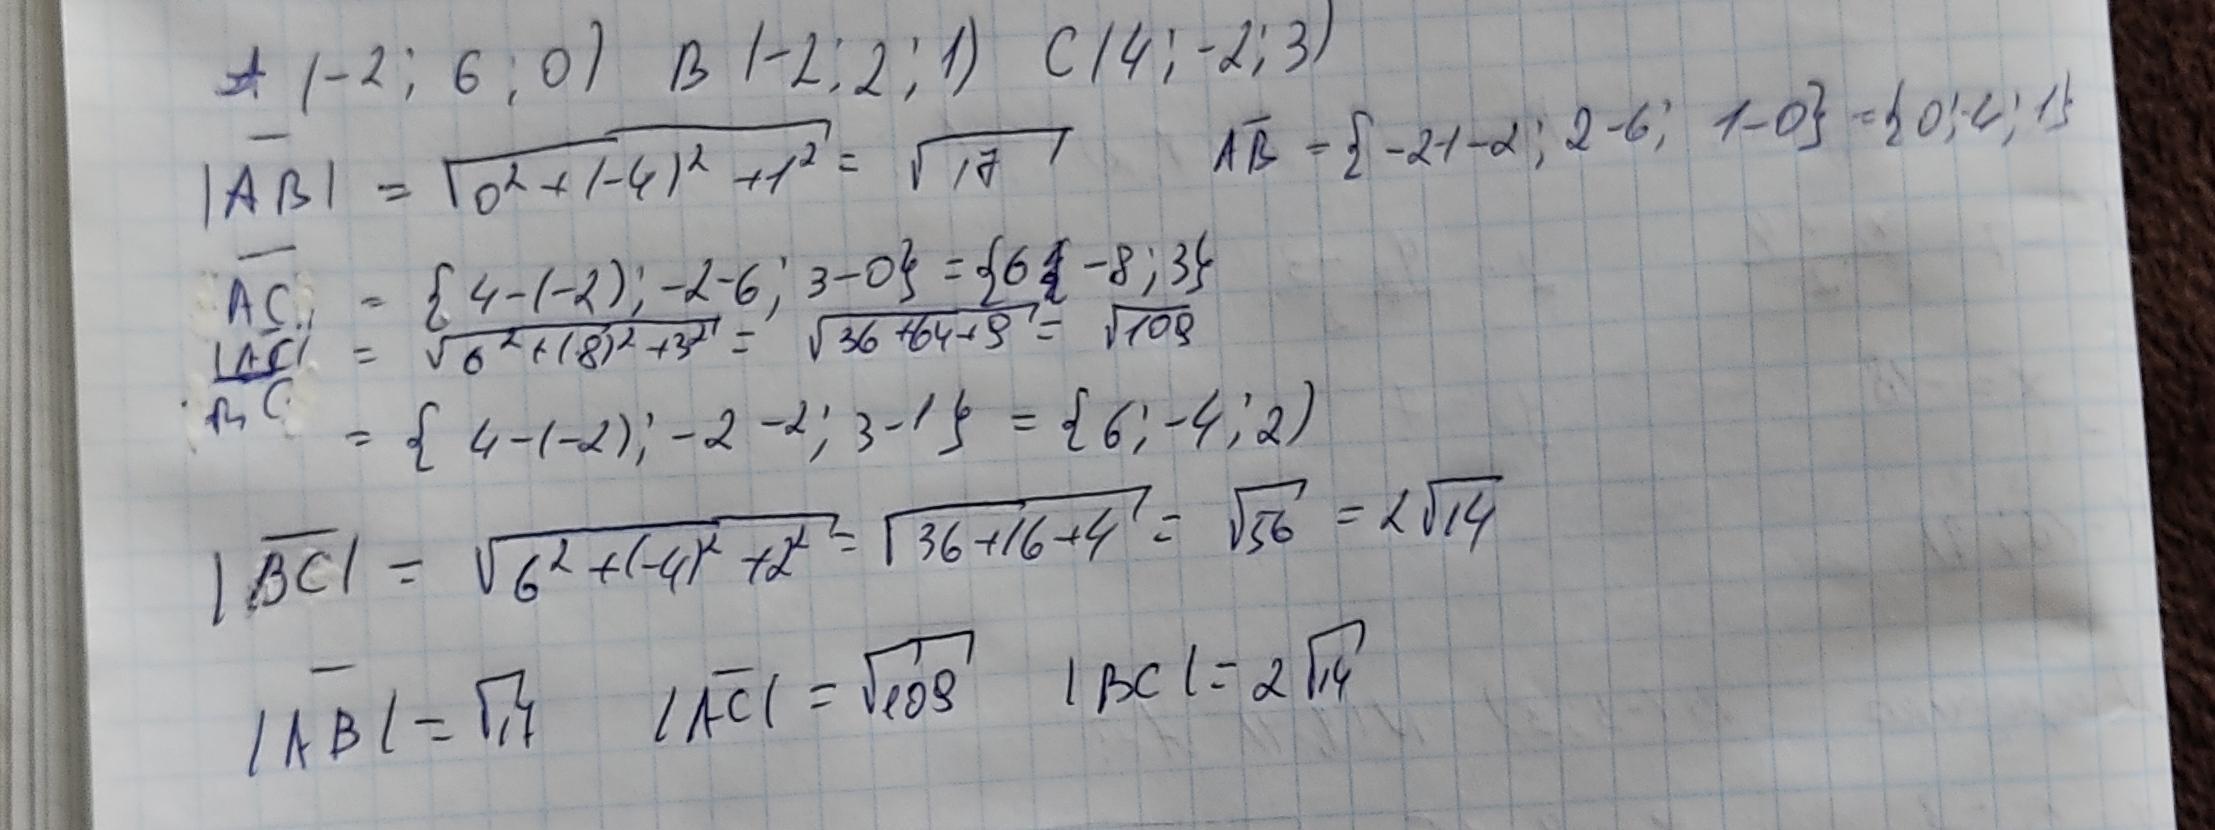 A (-2; 6; 0) B (-2; 2; 1) C (4; -2; 3)
|AB| = √0² + (-4)² + 1² = √17 AB = {-2-(-2; 2-6; 1-0} = {0; -4; 1}
AC = {4-(-2); -2-6; 3-0} = {6; -8; 3}
|AC| = √6² + (-8)² + 3² = √36+64+9 = √109
BC = {4-(-2); -2-2; 3-1} = {6; -4; 2)
|BC| = √6² + (-4)² + 2² = √36+16+4 = √56 = 2√14
|AB| = √17 |AC| = √109 |BC| = 2√14